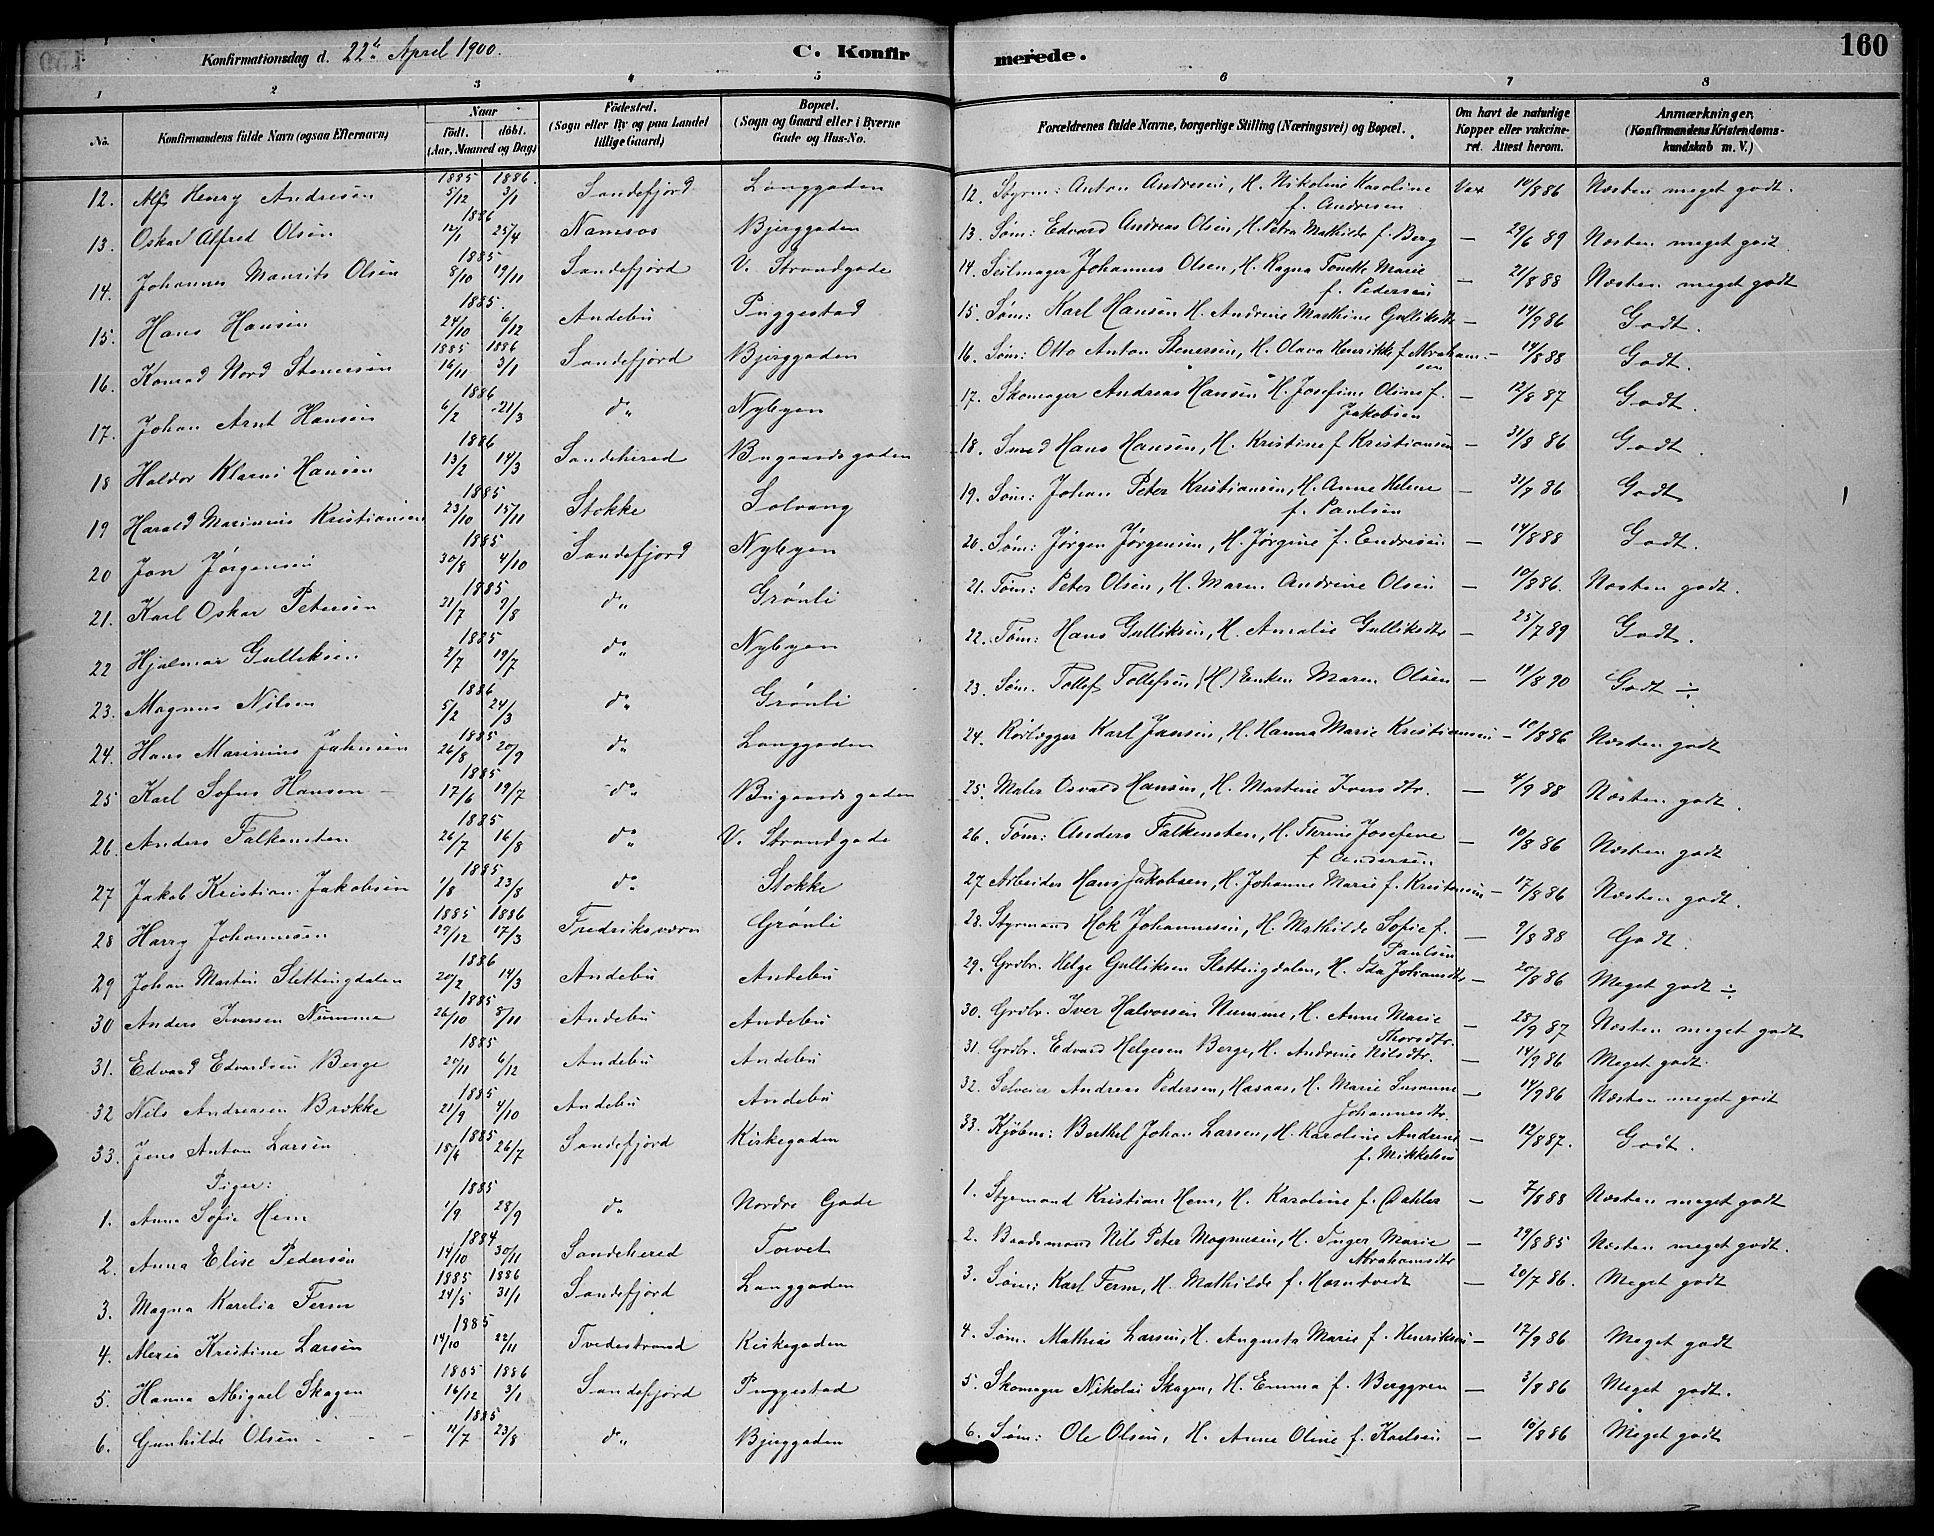 Konfirmationsdag d. 22de April 1900. C. Konfirmerede. 160
1 2 3 4 5 6 7 8
No. Konfirmandens fulde Navn (ogsaa Efternavn) Naar født. døbt. (Aar, Maaned og Dag) Fødested. (Sogn eller By og paa Landet tillige Gaard) Bopæl. (Sogn og Gaard eller i Byerne Gade og Hus-No. Forældrenes fulde Navne, borgerlige Stilling (Næringsvei) og Bopæl. Om havt de naturlige Kopper eller vakcineret. Attest herom. Anmærkninger. (Konfirmandens Kristendomskundskab m. V.)
12. Alf Henry Andresen 1885 5/12 1886. 3/1 Sandefjord Langgaden 12. Styrm: Anton Andresen, H. Nikoline Karoline f. Andresen Vax 10/8 86 Næsten meget godt.
13. Oskar Alfred Olsen 1886 12/1 25/4 Namsos Bjerggaden 13. Søm: Edvard Andreas Olsen, H. Petra Mathilde f. Berg — 29/6 89 Næsten meget godt.
14. Johannes Maurits Olsen 1885 8/10 19/11 Sandefjord V. Strandgade 14. Seilmager Johannes Olsen, H. Ragna Tonette Marie f. Pedersen — 21/8 88 Næsten meget godt
15. Hans Hansen 1885. 24/10 6/12 Andebu Puggestad 15. Søm: Karl Hansen H. Andrine Mathine Gulliksdtr — 14/9 86 Godt.
16. Konrad Nord Stenersen 1885 16/11 1886 3/1 Sandefjord Bjerggaden 16. Søm: Otto Anton Stenersen, H. Olava Henrikke f. Abrahamsen — 14/8 88 Godt.
17. Johan Arnt Hansen 1886 6/2 21/3 do Nybyen 17. Skomager Andreas Hansen H. Josefine Oline f. Jakobsen — 12/8 87 Godt.
18 Haldor Klarni Hansen 1886 13/2 14/3 Sandehered Bugaardsgaden 18. Smed Hans Hansen, H. Kristine f Kristiansen — 31/8 86 Godt.
19 Harald Marinius Kristiansen 1885 23/10 15/11 Stokke Solvang 19. Søm: Johan Peter Kristiansen, H. Anne Helene f. Paulsen — 31/7 86 Godt
20 Jon Jørgensen 1885 30/8 4/10 Sandefjord Nybyen 20. Søm: Jørgen Jørgensen, H. Jørgine f. Endresen — 14/8 88 Godt.
21. Karl Oskar Petersen 1885 21/7 9/8 do Grønli 21. Tøm: Peter Olsen, H. Maren Andrine Olsen — 10/8 86. Næsten godt.
22 Hjalmar Gulliksen 1885 2/7 19/7 do Nybyen 22. Tøm: Hans Gulliksen, H. Amalie Gulliksdtr — 25/7 89 Godt.
23. Magnus Nilsen 1886 5/2 24/3 do Grønli 23. Søm. Tollef Tollefsen (H) Enken Maren Olsen — 14/8 90 Godt ÷
24. Hans Marinius Jahnsen 1885 26/8 20/9 do Langgaden 24. Rørlægger Karl Jansen, H. Hanna Marie Kristiansen — 10/8 86 Næsten godt
25 Karl Sofus Hansen — 1885 17/6 19/7 do Bugaardsgaden 25. Maler Osvald Hansen, H. Martine Iversdtr. — 4/9 88 Næsten godt.
26. Anders Falkensten 1885 26/7 16/8 do V. Strandgade 26. Tøm: Anders Falkensten, H. Thrine Josefine f Andersen — 10/8 86 Næsten godt
27 Jakob Kristian Jakobsen 1885 1/8 23/8 do Stokke 27 Arbeider Hans Jakobsen, H. Johanne Marie f. Kristensen — 17/8 86 Næsten godt.
28 Harry Johannesen 1885 29/12 1886 17/3 Fredriksværn Grønli 28. Styrmand Hok Johannesen, H. Mathilde Sofie f. Paulsen — 9/8 88 Godt.
29 Johan Martin Slettingdalen 1886 20/2 14/3 Andebu Andebu 29. Grdbr. Helge Gulliksen Slettingdalen, H. Ida Johansdtr — 20/8 86 Meget godt ÷
30 Anders Iversen Numme 1885 26/10 8/11 Andebu Andebu 30. Grdbr. Iver Halvorsen Numme, H. Anne Marie Thorsdtr. — 28/9 87 Næsten meget godt
31. Edvard Edvardsen Berge 1885 20/11 6/12 Andebu Andebu 31. Grdbr. Edvard Helgesen Berge, H. Andrine Nilsdtr. — 14/9 86 Meget godt.
32 Nils Andreasen Brække 1885 21/9 4/10 Andebu Andebu 32. Selveier Andreas Pedersen, Hasaas, H. Marie Susanne Johannesdtr. — 14/9 86 Næsten meget godt
33. Jens Anton Larsen 1885 18/4 26/7 Sandefjord Kirkegaden 33. Kjøbm: Berthel Johan Larsen, H. Karoline Andrine f. Mikkelsen — 12/8 87. Godt.
Piger:
1. Anna Sofie Hem 1885 1/9 28/9 do Nordre Gade 1. Styrmand Kristian Hem, H. Karoline f. Dahler — 7/8 88 Næsten meget godt
2. Anna Elise Pedersen 1884 14/10 30/11 Sandehered Torvet 2. Baadsmand Nils Peter Magnusen, H. Inger Marie Abrahamsdtr — 29/8 85 Næsten meget godt.
3. Magna Karelia Ferm 1885 24/5 1886 31/1 Sandefjord Langgaden 3. Søm: Karl Ferm, H. Mathilde f. Horntvedt — 20/7 86. Meget godt
4. Alexia Kristine Larsen 1885 14/10 22/11 Tvedestrand Kirkegaden 4. Søm. Mathias Larsen, H. Augusta Marie f. Henriksen — 17/9 86 Meget godt
5. Hanna Abigael Skagen 1885 16/12 1886 3/1 Sandefjord Puggestad 5. Skomager Nikolai Skagen, H. Emma f. Berggren — 3/8 86 Meget godt.
6. Gunhilde Olsen 1885 11/7 23/8 do Bjerggaden 6. Søm: Ole Olsen, H. Anne Oline f. Karlsen — 10/8 86 Meget godt